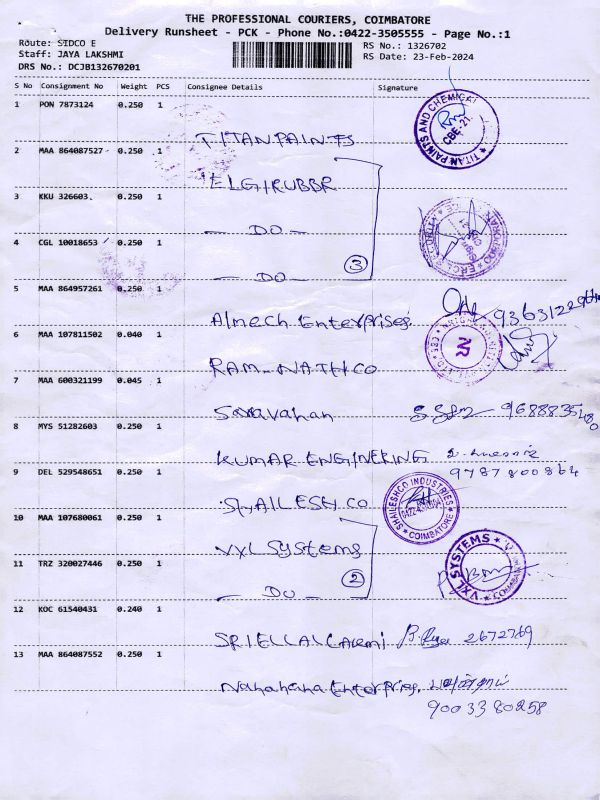 THE PROFESSIONAL COURIERS, COIMBATORE
Delivery Runsheet - PCK - Phone No.:0422-3505555 - Page No.:1
Route: SIDCO E
RS No.: 1326702
Staff: JAYA LAKSHMI
RS Date: 23-Feb-2024
DRS No.: DCJB132670201
S No Consignment No Weight PCS Consignee Details Signature
1 PON 7873124 0.250 1 TITAN PAINTS
TITAN PAINTS AND CHEMICAL CBE-21
2 MAA 864087527 0.250 1 ELGIRUBBR
3 KKU 326603 0.250 1 - DO -
4 CGL 10018653 0.250 1 - DO - 3
5 MAA 864957261 0.250 1 Almech Enterprises.
6 MAA 107811502 0.040 1 RAM-NATHCO
NR
7 MAA 600321199 0.045 1 Saravahan
8 MYS 51282603 0.250 1 KUMAR ENGINERING
9787800864
9 DEL 529548651 0.250 1 SHAILESH CO
SHAILESHCO INDUSTRIES COIMBATORE
10 MAA 107680061 0.250 1 VXL Systems
VXL SYSTEMS
11 TRZ 320027446 0.250 1 - DO - 2
12 KOC 61540431 0.240 1 2672769
13 MAA 864087552 0.250 1
9003380258